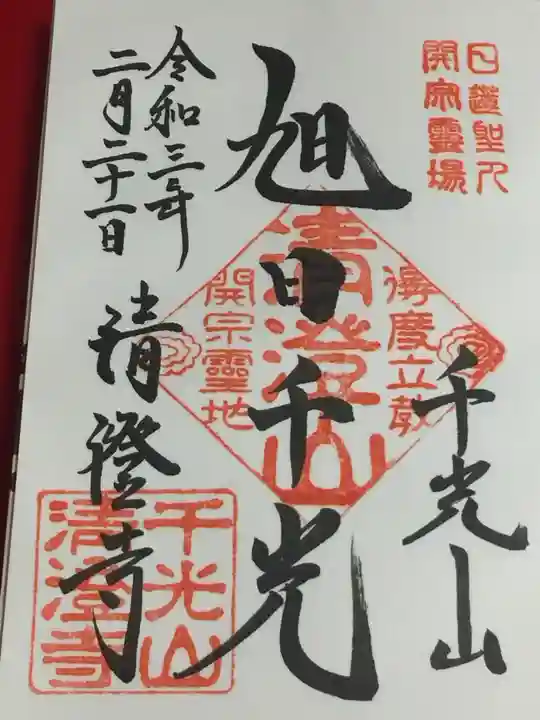 日蓮聖人
開宗靈場
千光山
旭日千光
清澄山
得度立教
開宗靈地
令和三年
二月二十一日
清澄寺
千光山
清澄寺